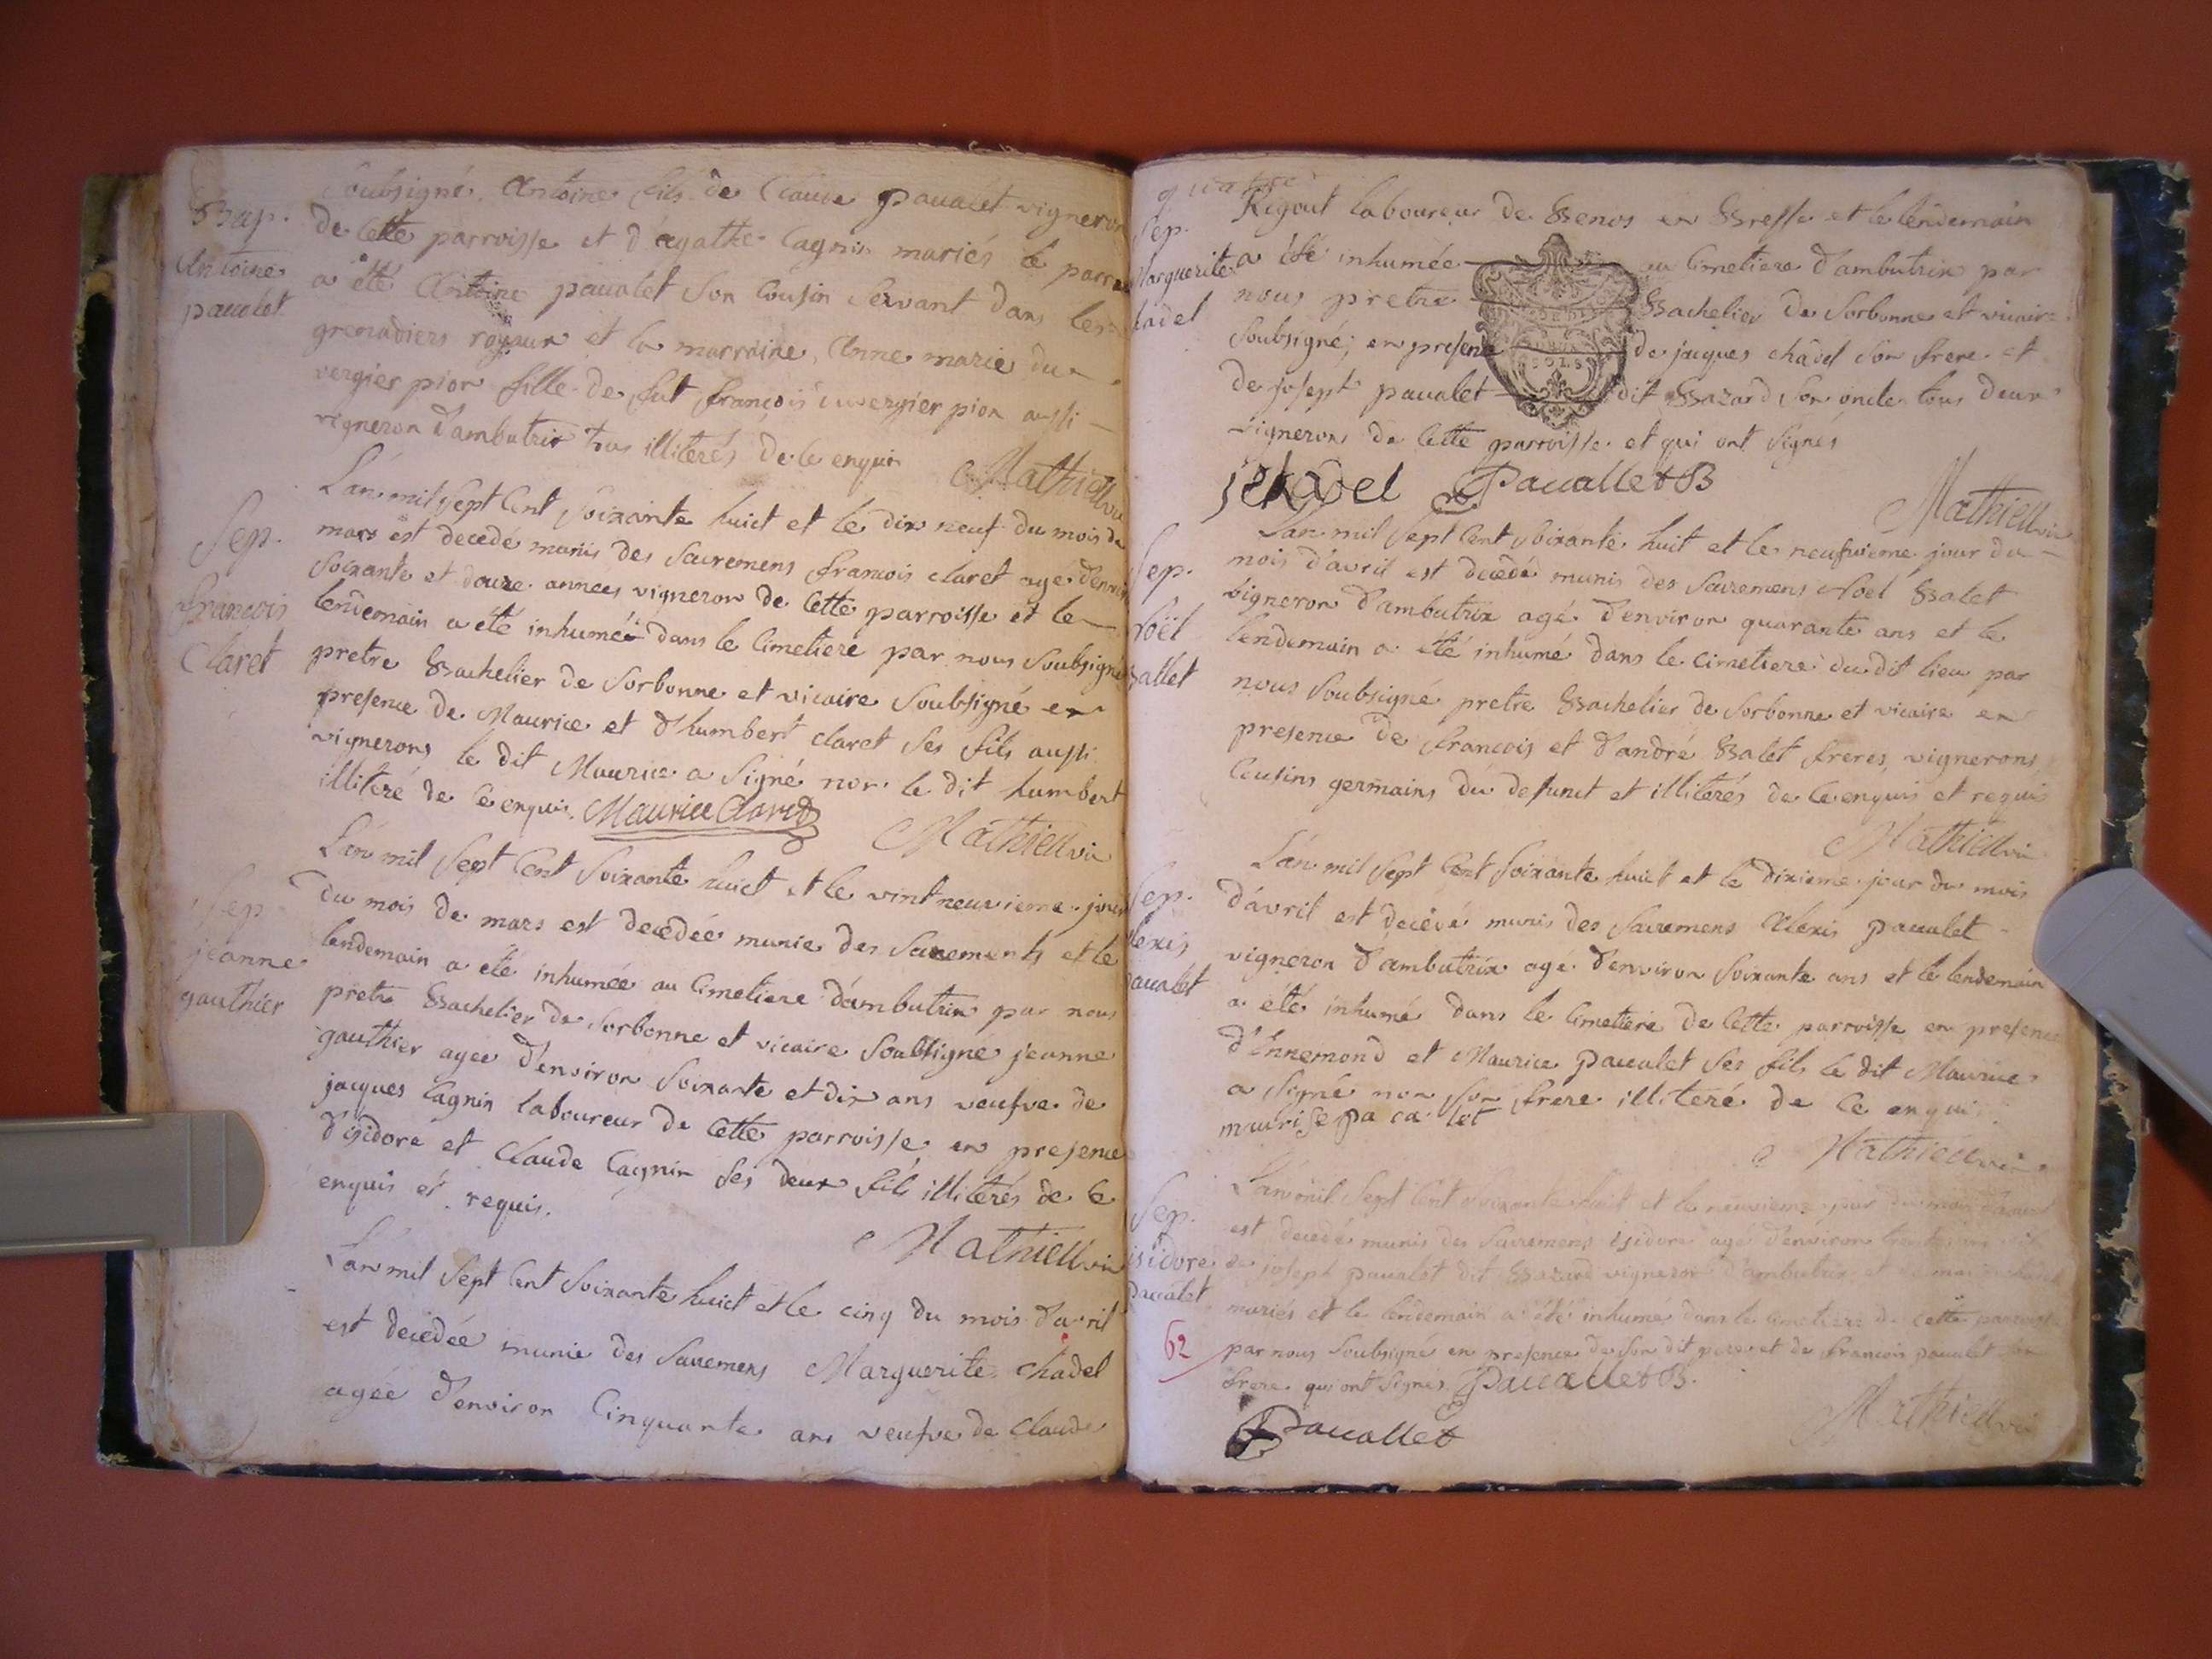 Bap.
Antoine
pavalet
Soubsigné. Antoine fils de Claude pavalet vigneron
de Cette parroisse et d'agathe Cagnin mariés le parrain
a été Antoine pavalet Son Cousin Servant dans les
grenadiers royaux et la marraine, Anne marie du
vergier pion fille de fut françois duvergier pion aussi
vigneron d'ambutrix tous illiterés de ce enquis
Mathieu vic
Sep.
françois
Claret
L'an mil Sept Cent Soixante huict et le dix neuf du mois de
mars est decedé munis des Sacremens françois claret agé d'environ
Soixante et douze annees vigneron de Cette parroisse et le
lendemain a été inhumée dans le Cimetiere par nous Soubsigné
pretre Bachelier de Sorbonne et vicaire Soubsigné en
presence de Maurice et d'humbert claret Ses fils aussi
vignerons le dit Maurice a Signé non le dit humbert
illiteré de ce enquis. Maurice Claret
Mathieu vic
Sep
jeanne
gauthier
L'an mil Sept Cent Soixante huict et le vint neuvieme jour
du mois de mars est decedée munie des Sacements et le
lendemain a eté inhumée au Cimetiere d'ambutrix par nous
pretre Bachelier de Sorbonne et vicaire Soubsigné jeanne
gauthier agee d'environ Soixante et dix ans veufve de
jacques Cagnin laboureur de Cette parroisse en presence
d'isidore et Claude Cagnin Ses deux fils illiterés de ce
enquis et requis.
Mathieu vic
L'an mil Sept Cent Soixante huict et le cinq du mois d'avril
est decedée munie des Sacremens Marguerite chadel
agée d'environ Cinquante ans veufve de Claude
quatre
Sep.
Marguerite
hadel
Rigout laboureur de Benos en Bresse et le lendemain
a été inhumée au Cimetiere d'ambutrix par
nous pretre Bachelier de Sorbonne et vicaire
Soubsigné; en presence de jacques châdel Son frere et
de joseph pavalet dit Bazard Son oncle tous deux
vignerons de Cette parroisse et qui ont Signés
SOLS
j chadel Pavallet B
Mathieu vic
Sep.
Noël
Ballet
L'an mil Sept Cent Soixante huit et le neufvieme jour du
mois d'avril est decedé munis des Sacremens Noel Balet
vigneron d'ambutrix agé d'environ quarante ans et le
lendemain a été inhumé dans le cimetiere du dit lieu par
nous Soubsigné pretre Bachelier de Sorbonne et vicaire en
presence de françois et d'andré Balet freres, vignerons
Cousins germains du defunct et illiterés de ce enquis et requis
Mathieu vic
Sep.
lexis
pavalet
L'an mil Sept Cent Soixante huict et le dixieme jour du mois
d'avril est decedé munis des Sacremens Alexis pavalet
vigneron d'ambutrix agé d'environ Soixante ans et le lendemain
a été inhumé dans le Cimetiere de Cette parroisse en presence
d'Ennemond et Maurice pavalet Ses fils le dit Maurice
a Signé non Son frere illiteré de ce enquis
murise pa ca let
Mathieu vic
Sep.
isidore
pavalet
62
L'an mil Sept Cent Soixante huit et le neuvieme jour du mois d'avril
est decedé munis des Sacremens isidore agé d'environ
de joseph pavalet dit Bazard vigneron d'ambutrix et
mariés et le lendemain a été inhumé dans le Cimetiere de Cette parroisse
par nous Soubsigné en presence de Son dit pere et de françois pavalet Son
frere qui ont Signés Pavallet B.
Mathieu vic
f Pavallet